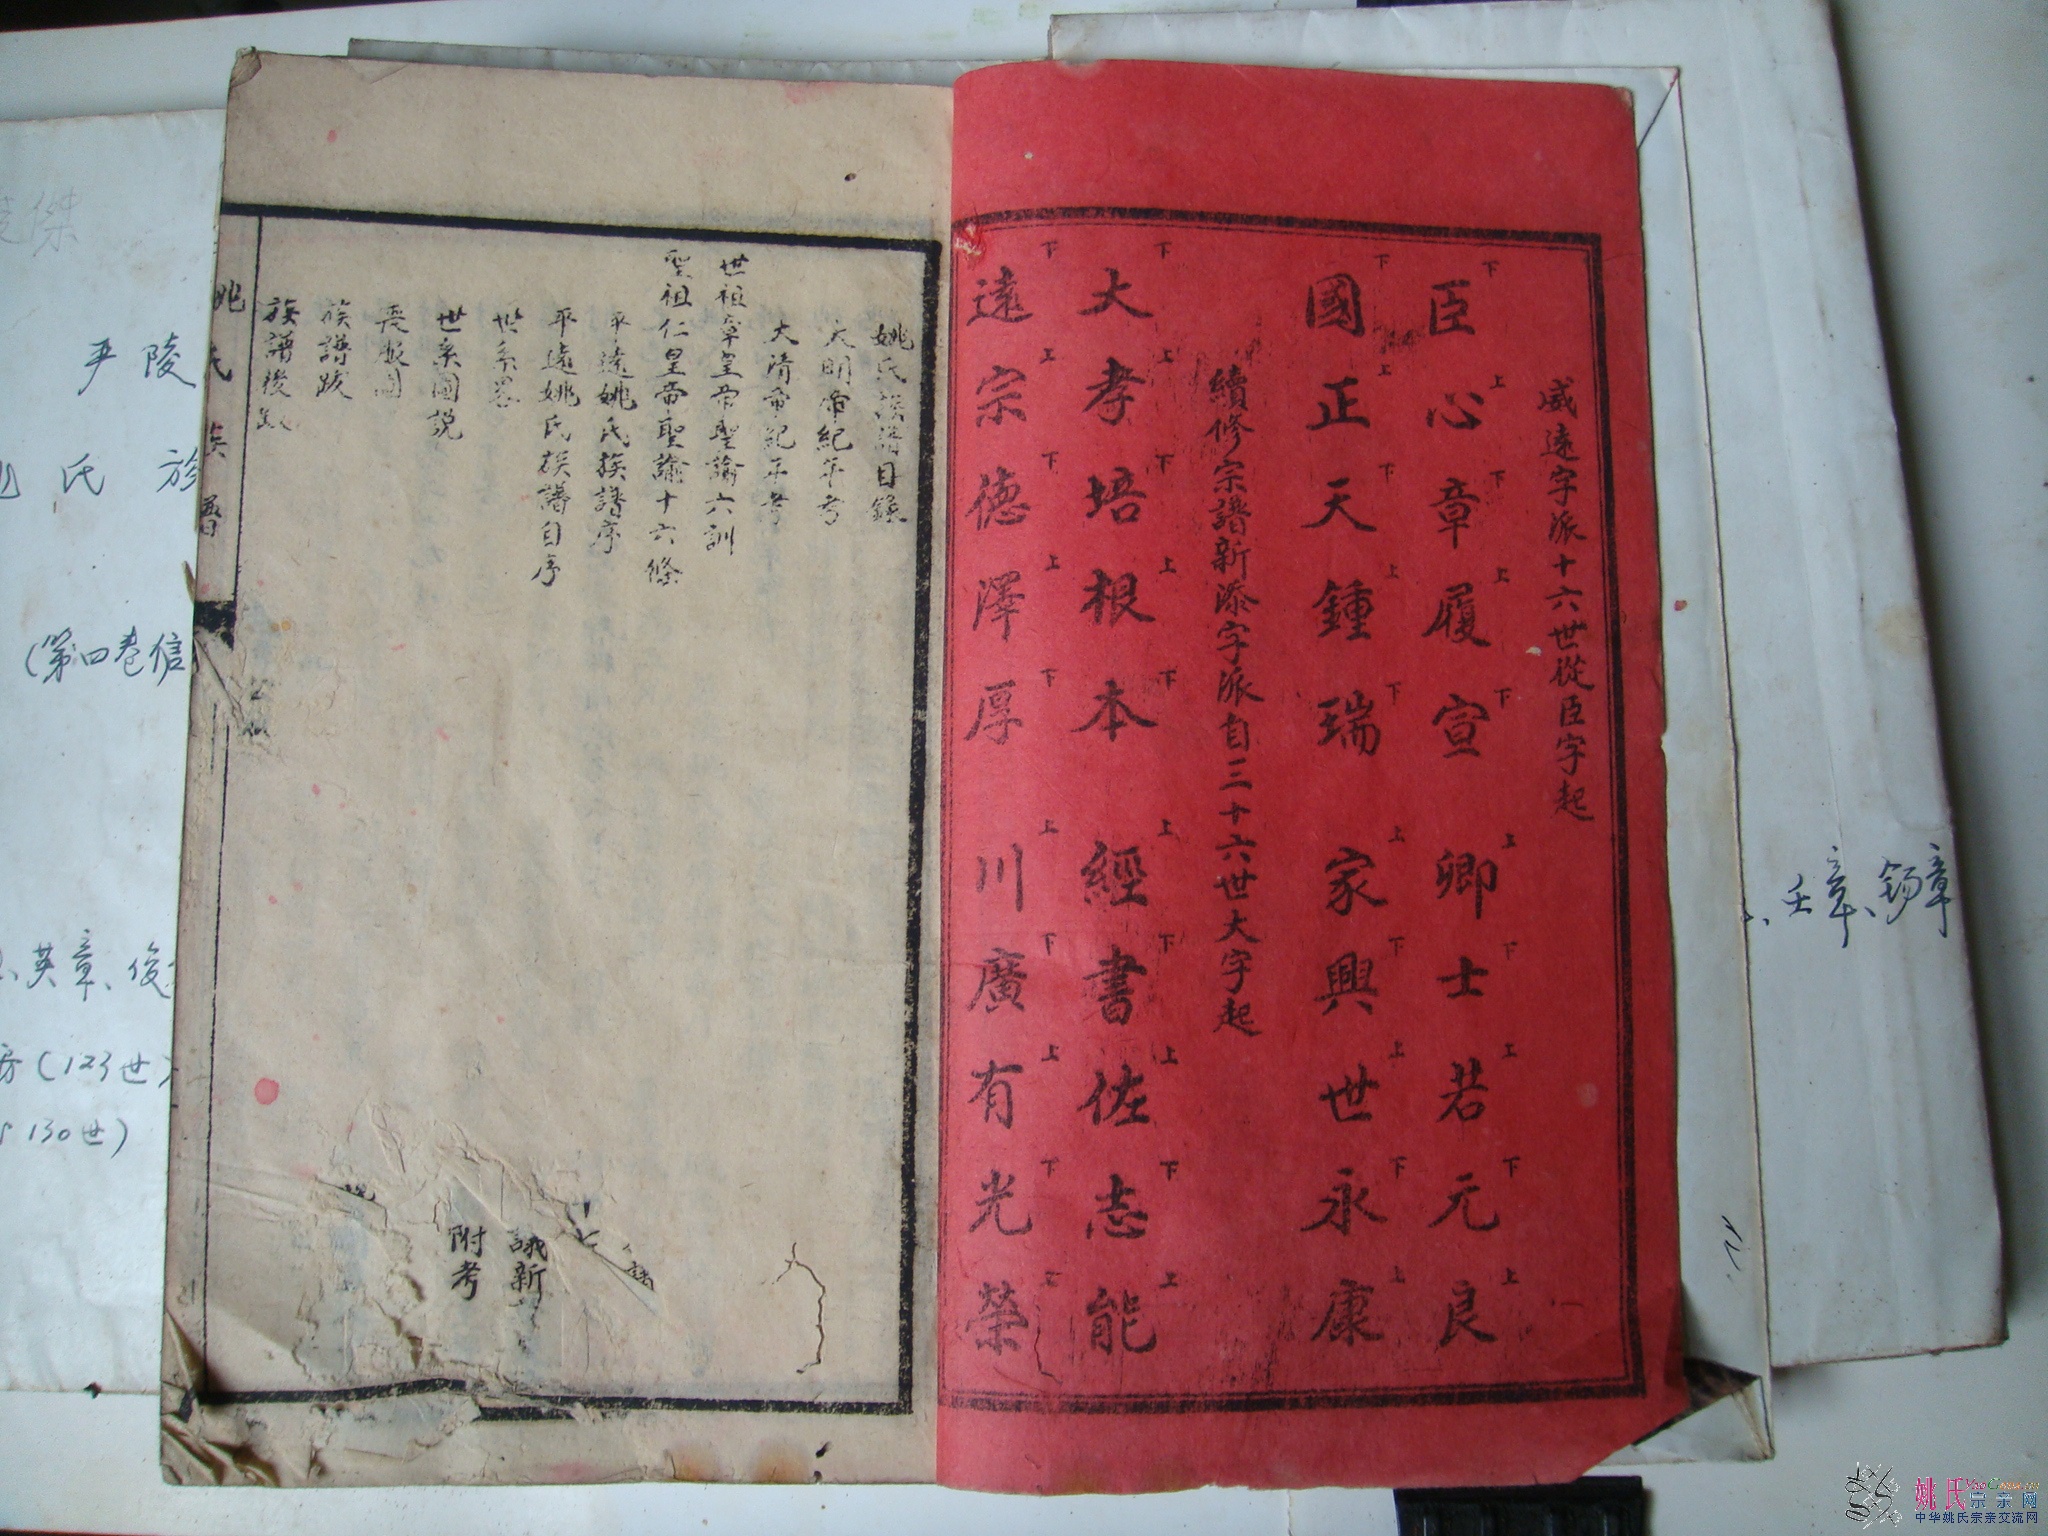 威遠字派十六世從臣字起
臣心章履宣 卿士若元良
國正天鍾瑞 家興世永康
續修宗譜新添字派自三十六世大字起
大孝培根本 經書佐志能
遠宗德澤厚 川廣有光榮
姚氏族譜目錄
大明帝紀年考
大清帝紀年考
世祖章皇帝聖諭六訓
聖祖仁皇帝聖諭十六條
平遠姚氏族譜序
平遠姚氏族譜自序
世系畧
世系圖說
喪服圖
族譜跋
族譜後跋
議新
附考
姚氏族譜
严陵
氏
(第四卷信
英章、俊
房(123世
130世)
傑
壬章、錫章
姚氏宗亲网
中华姚氏宗亲交流网